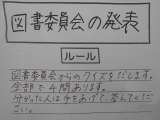 図書委員会の発表
ルール
図書委員会からのクイズをだします。
全部で4問あります。
分かった人は手をあげて、答えてくだ
さい。